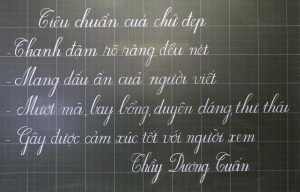 Tiêu chuẩn cuả chữ đẹp
- Thanh đậm rõ ràng, đều nét
- Mang dấu ấn cuả người viết
- Mượt mà, bay bổng, duyên dáng, thư thái
- Gây được cảm xúc tốt với người xem
Thầy Dương Tuấn